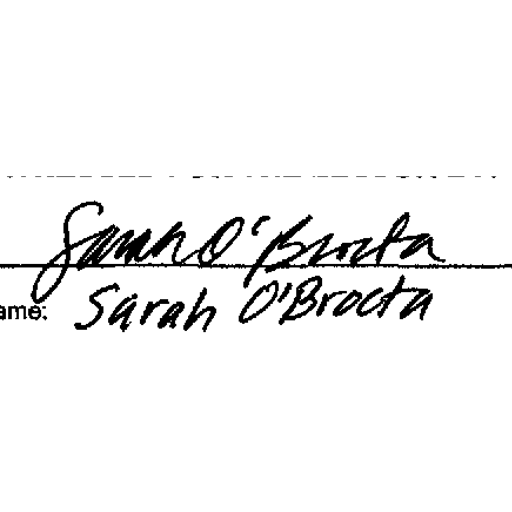 Sarah O'Brocta
ame: Sarah O'Brocta